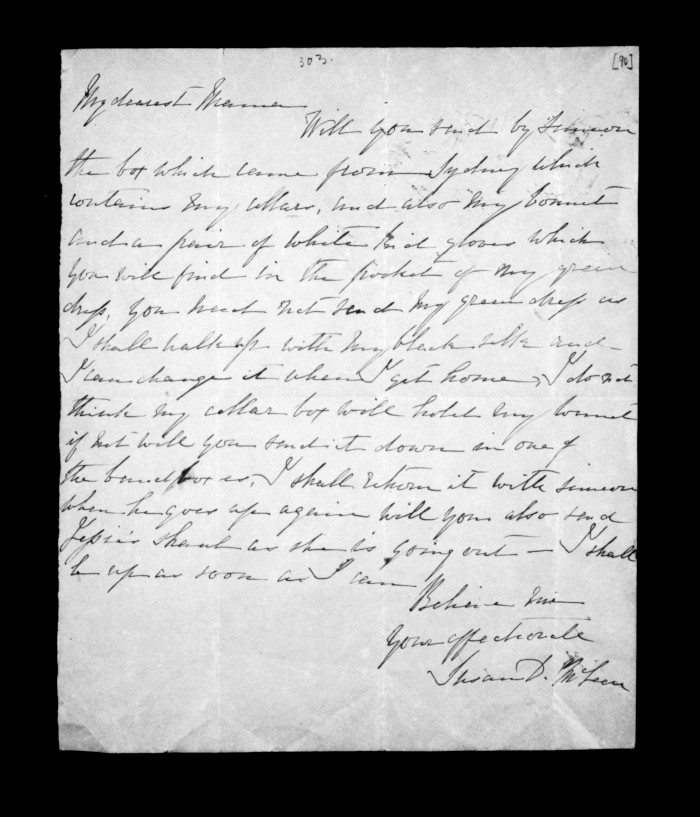 303.
[90]
My dearest Mamma
Will you send by Simeon
the box which came from Sydney which
contains my collars, and also my bonnet
and a pair of white kid gloves which
you will find in the pocket of my green
dress, you need not send my green dress as
I shall walk up with my black silk and
I can change it when I get home, I do not
think my collar box will hold my bonnet
if not will you send it down in one of
the band boxes, I shall return it with Simeon
when he goes up again will you also send
Jessie's shawl as she is going out — I shall
be up as soon as I can
Believe me
Your affectionate
Susan D. McLean